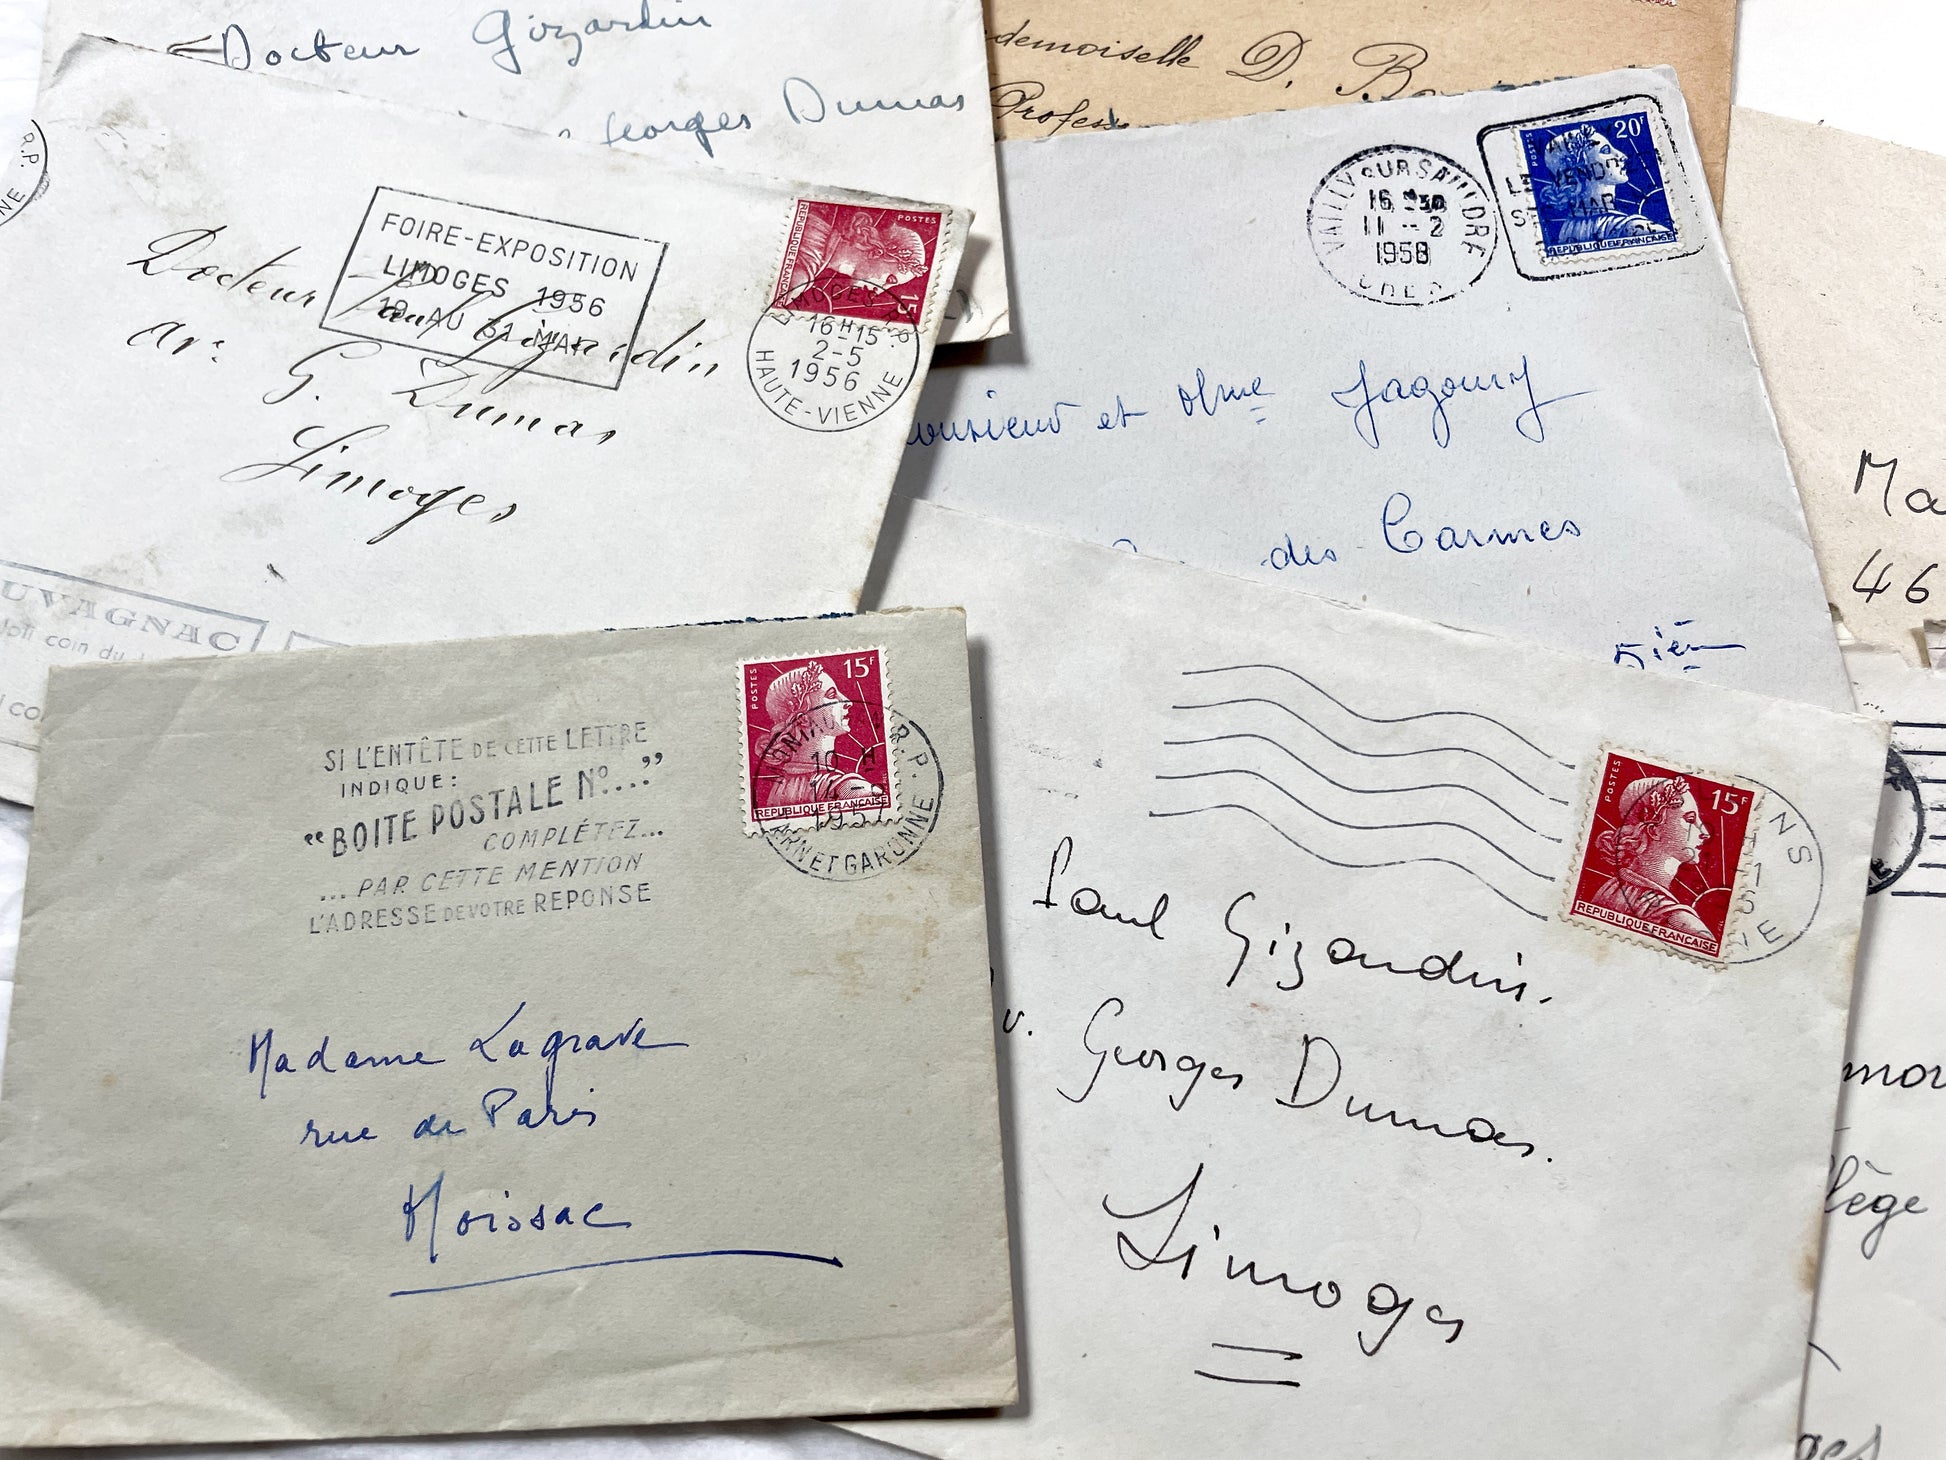 Docteur Gizardin
Georges Dumas
demoiselle D.
R.P.
NE
FOIRE-EXPOSITION
LIMOGES 1956
AU 31 MAI
POSTES
REPUBLIQUE FRANÇAISE
15F
LIMOGES R.P.
16H15
2-5
1956
HAUTE-VIENNE
Docteur Paul Gizardin
av. G. Dumas
Limoges
UVAGNAC
coin du
VAILLY SUR SAULDRE
16 H 30
11 - 2
1958
CHER
20F
POSTES
REPUBLIQUE FRANÇAISE
Monsieur et Mme Jagoury
des Carmes
5ième
Ma
46
SI L'ENTÊTE DE CETTE LETTRE
INDIQUE:
"BOITE POSTALE No..."
COMPLÉTEZ...
...PAR CETTE MENTION
L'ADRESSE DE VOTRE REPONSE
POSTES
15F
REPUBLIQUE FRANÇAISE
R.P.
10 H
195
TARN ET GARONNE
Madame Lagrave
rue de Paris
Moissac
POSTES
15F
REPUBLIQUE FRANÇAISE
NS
Paul Gizardin.
v. Georges Dumas.
Limoges
mor
lège
ges